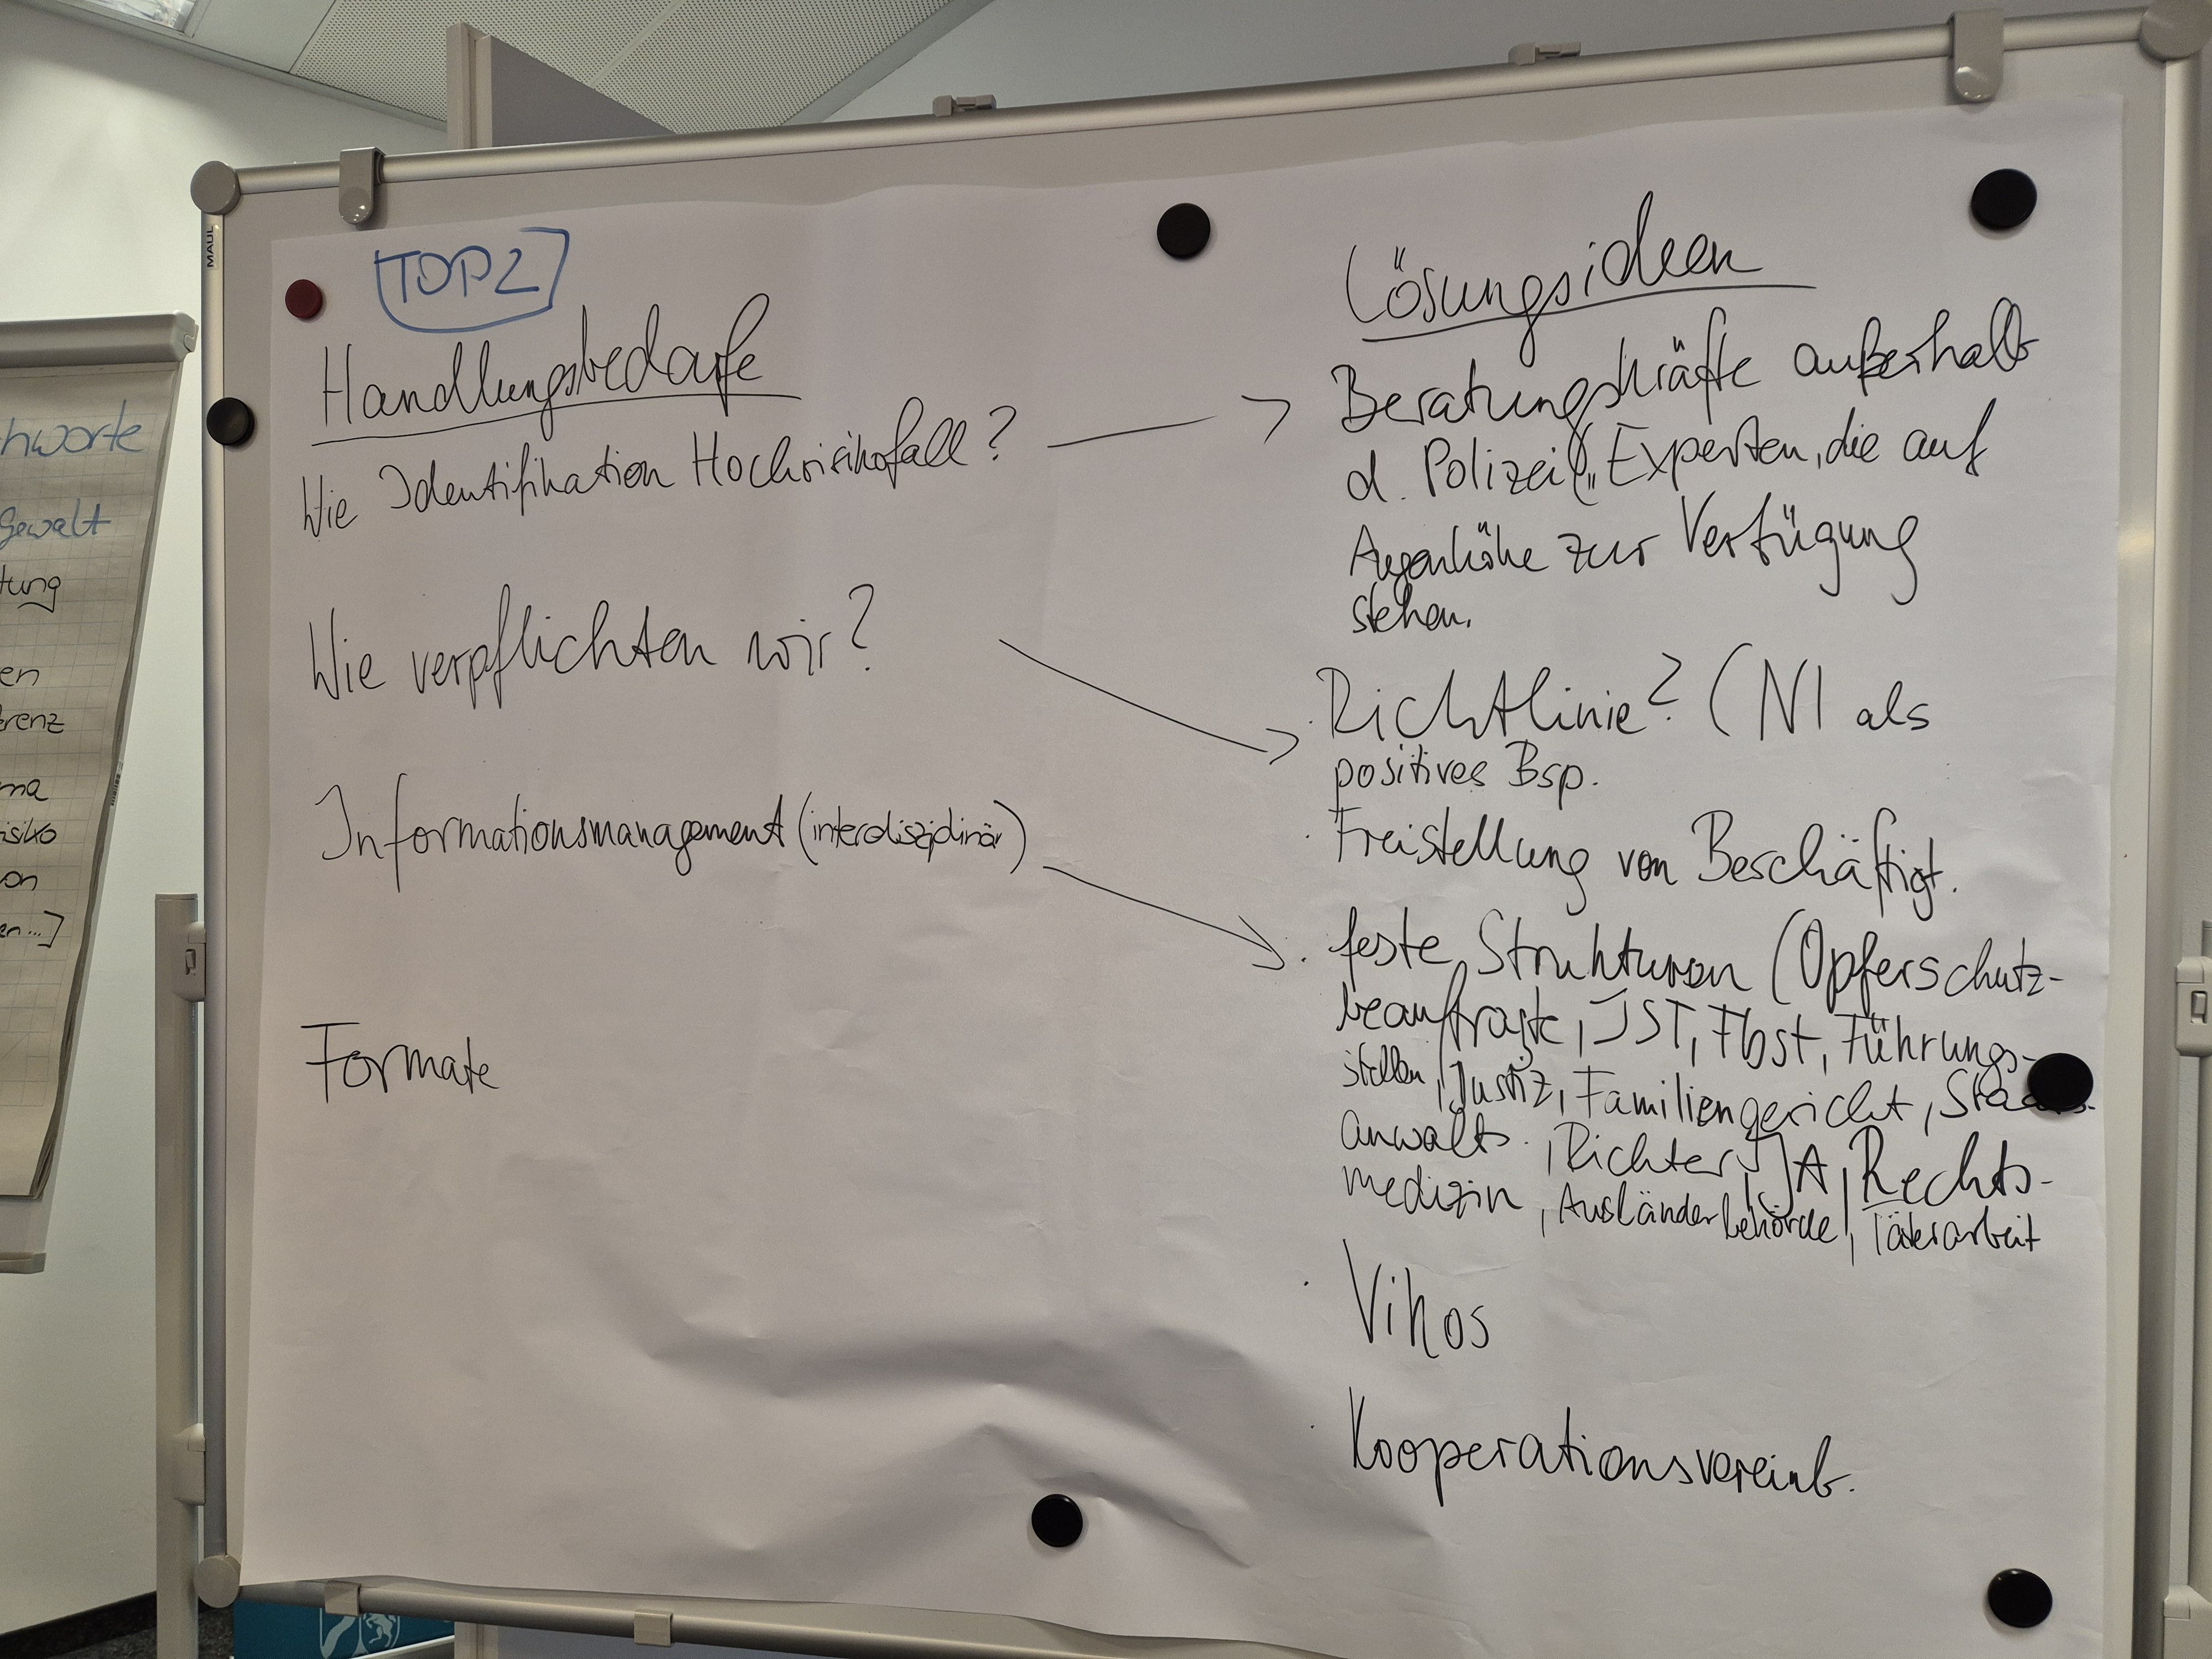 MAUL
TOP2
Handlungsbedarfe
Wie Identifikation Hochrisikofall?
Wie verpflichten wir?
Informationsmanagement (interdisziplinär)
Formate
Lösungsideen
Beratungskräfte außerhalb
d. Polizei („Experten, die auf
Augenhöhe zur Verfügung
stehen.
· Richtlinie? (NI als
positives Bsp.
· Freistellung von Beschäftigt.
· feste Strukturen (Opferschutz-
beauftragte, IST, Fbst, Führungs-
stellen, Justiz, Familiengericht, Staats-
anwalts., Richter, JA, Rechts-
medizin, Ausländerbehörde, Täterarbeit
· Vikos
· Kooperationsvereinb.
hworte
Gewalt
tung
en
erenz
ma
isiko
on
en...]